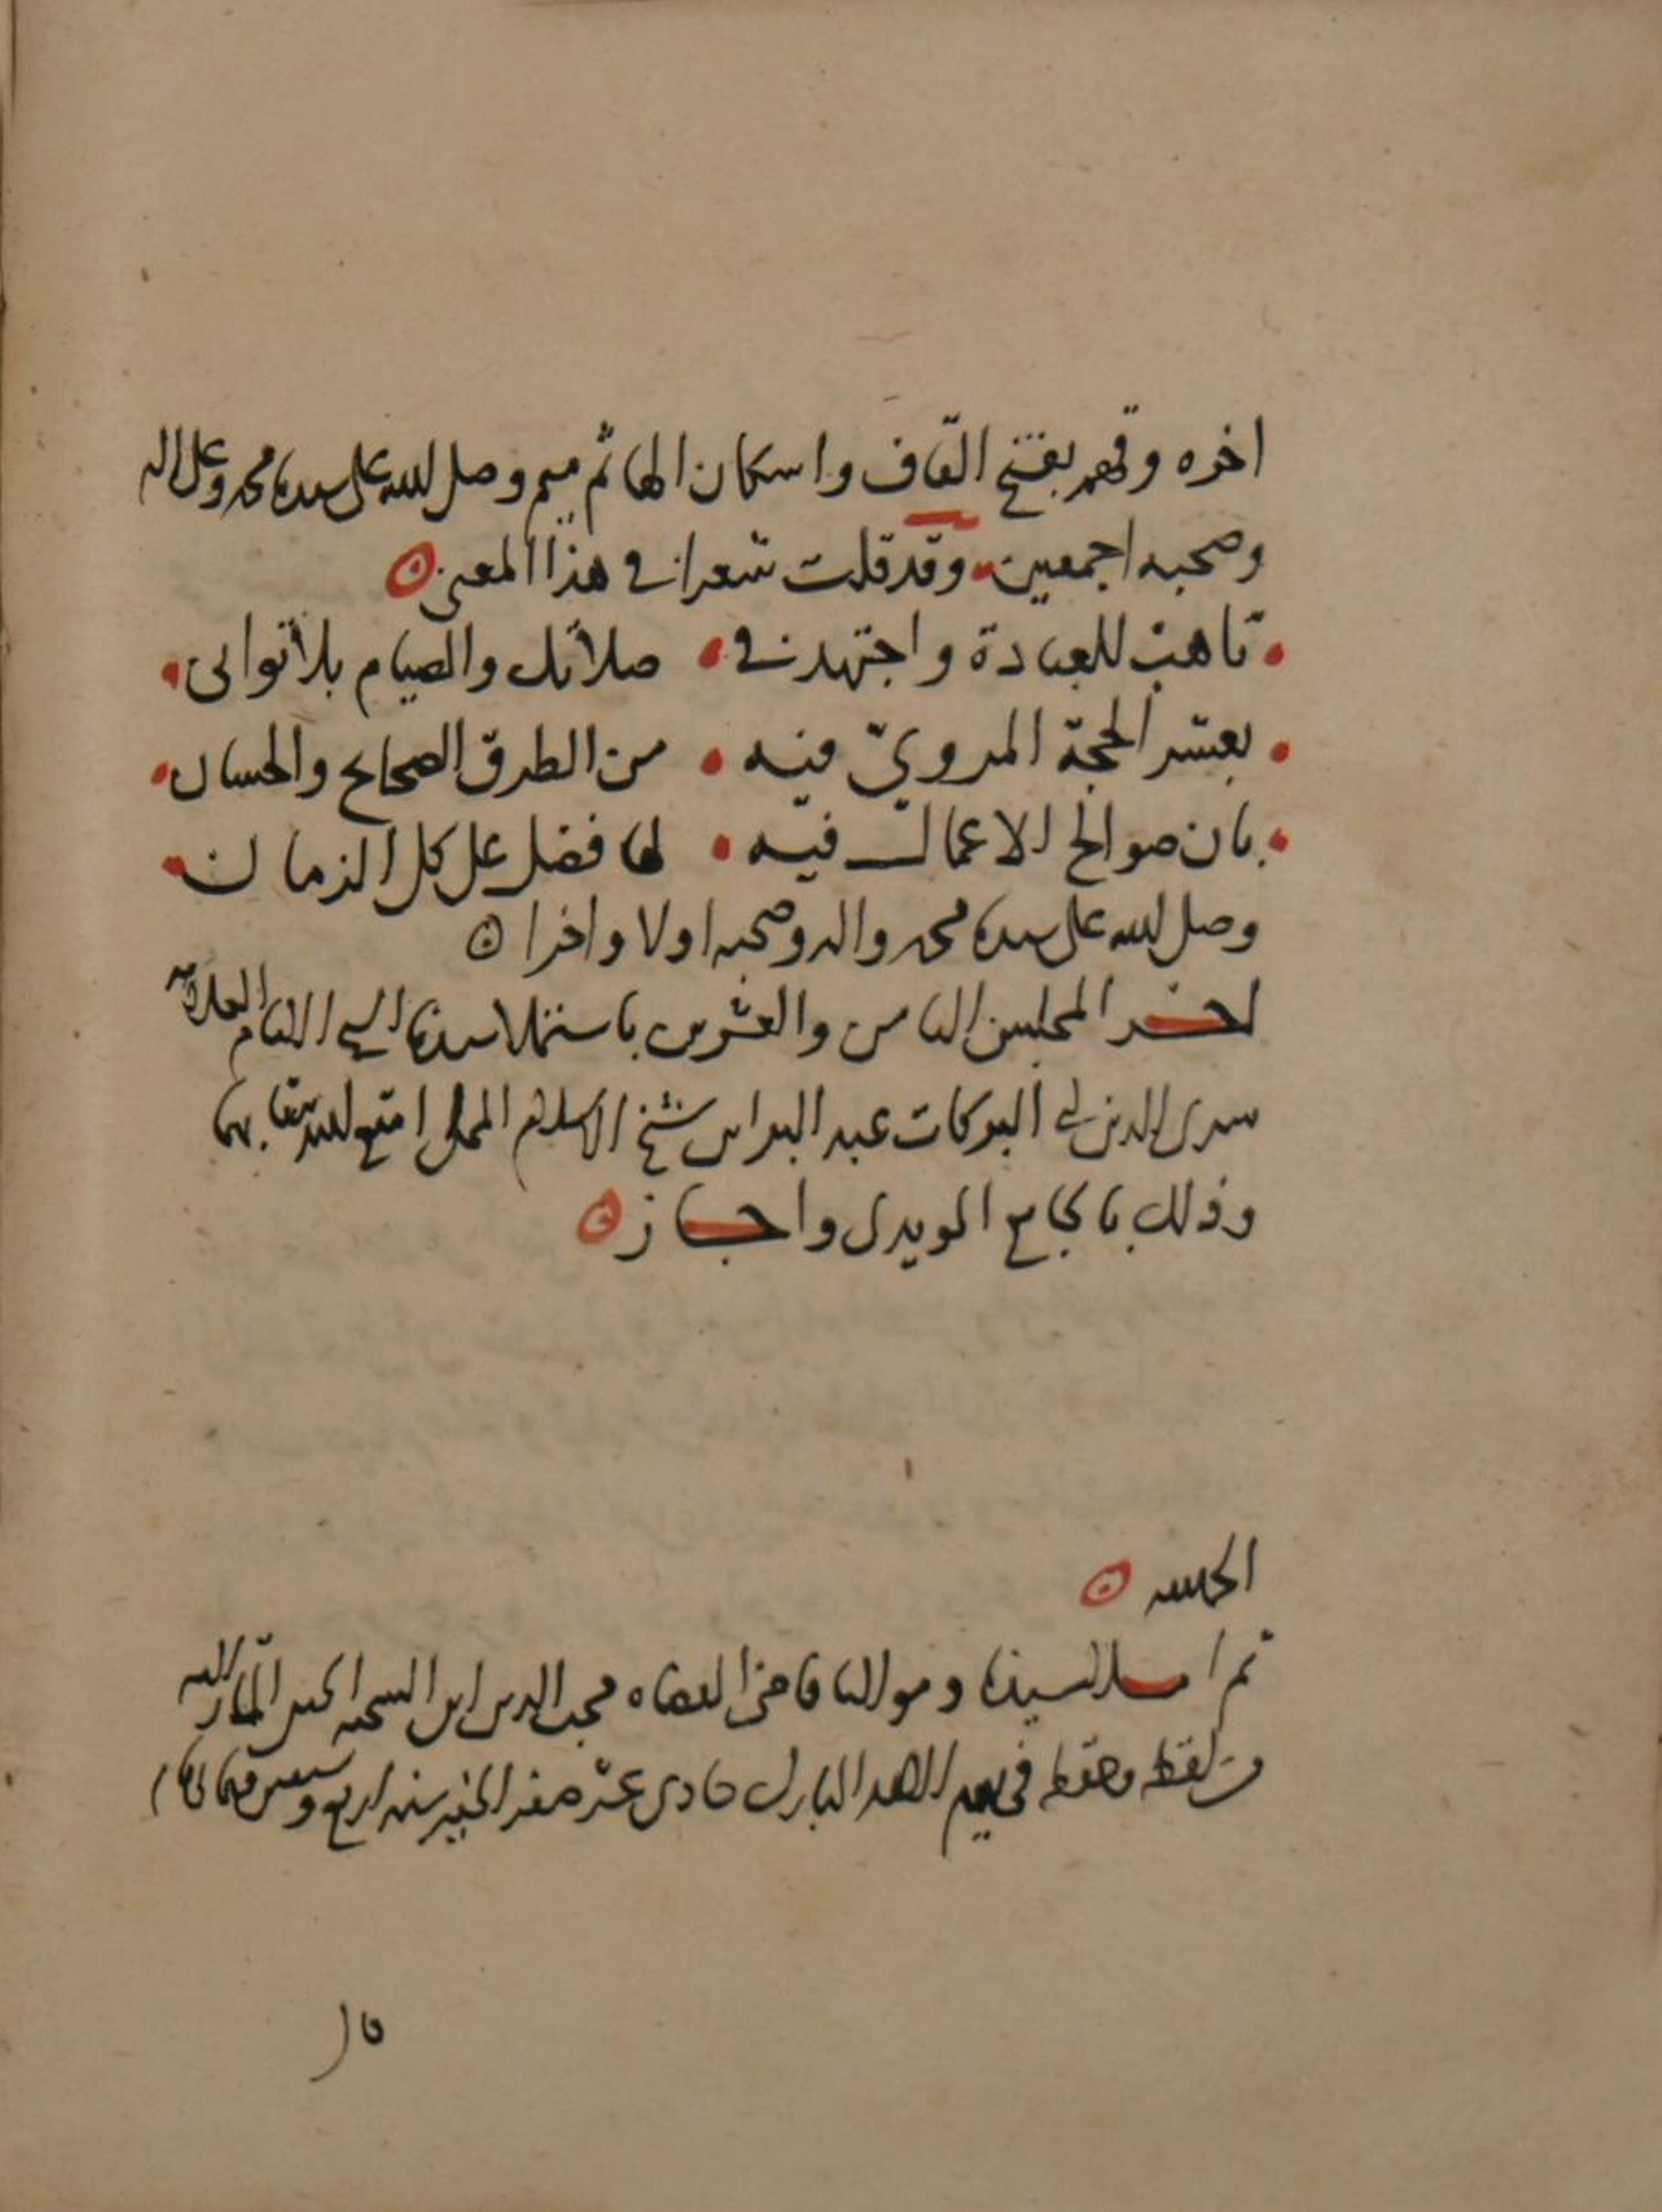 اخره وقهم بفتح القاف واسكان الها ثم ميم وصلى الله على سيدنا محمد وعلى اله
وصحبه اجمعين وقد قلت شعرا في هذا المعنى
تاهب للعبادة واجتهد في • صلاتك والصيام بلا تواني
بعشر الحجة المروي فيه • من الطرق الصحاح والحسان
بان صوالح الاعمال فيه • لها فضل على كل الزمان
وصلى الله على سيدنا محمد واله وصحبه اولا واخرا
اخر المجلس الثامن والعشرين باستملا سيدنا الشيخ الامام العلامة
سرى الدين ابي البركات عبد البر ابن شيخ الاسلام المملى امتع الله تعالى بهما
وذلك بالجامع المويدى واجاز
الحمد لله
ثم املا سيدنا ومولانا قاضى القضاة محب الدين ابن الشحنة الحنفى
من لفظه وحفظه في يوم الاحد المبارك حادى عشر صفر الخير سنة اربع وسبعين وثمانمائة